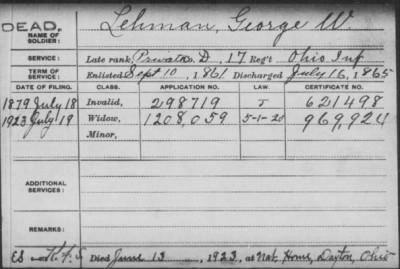 DEAD.
NAME OF SOLDIER: Lehman, George W.
SERVICE: Late rank, Private Co. D, 17 Reg't Ohio Inf
TERM OF SERVICE: Enlisted Sept 10, 1861 Discharged July 16, 1865
DATE OF FILING. CLASS. APPLICATION NO. LAW. CERTIFICATE NO.
1879 July 18 Invalid, 298719 J 621498
1923 July 19 Widow, 1208,059 5-1-20 969,924
Minor,
ADDITIONAL SERVICES:
REMARKS:
Died June 13, 1923, at Nat. Home, Dayton, Ohio